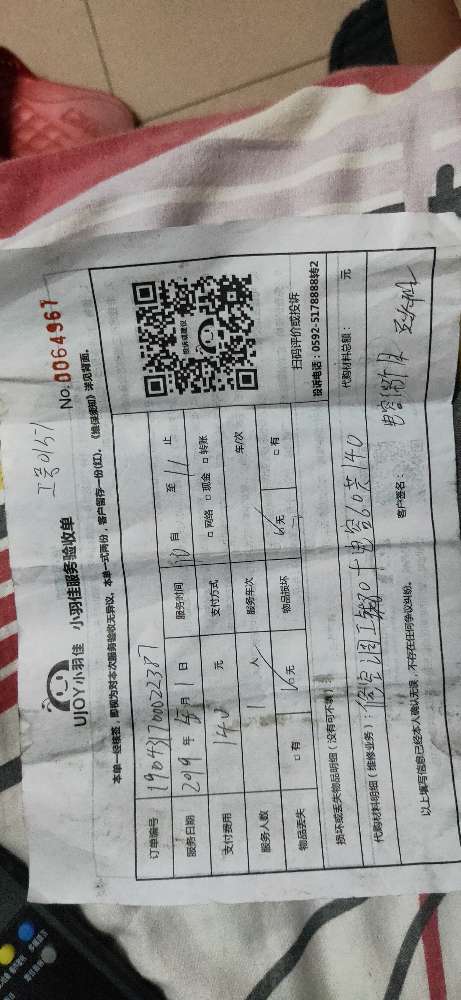 工号0157
UJOY小羽佳 小羽佳服务验收单 No.0064967
本单一经核签，即视为对本次服务验收无异议。本单一式两份，客户留存一份(红)。《维保须知》详见背面。
订单编号 190431700022387
服务日期 2019 年 5 月 1 日 服务时间 10 自 至 11 止
支付费用 140 元 支付方式 □ 网络 □ 现金 □ 转账
服务人数 1 人 服务车次 车/次
物品丢失 □ 有 无 物品损坏 无 □ 有
投诉或建议
扫码评价或投诉
投诉电话：0592-5178888转2
损坏或丢失物品明细（没有可不填）：
代购材料明细（维修业务）：修空调工费80+电容60共140 代购材料总额： 元
以上填写信息已经本人确认无误，不存在任何争议纠纷。 客户签名：